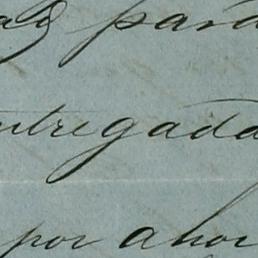 para
entregada
por ahor